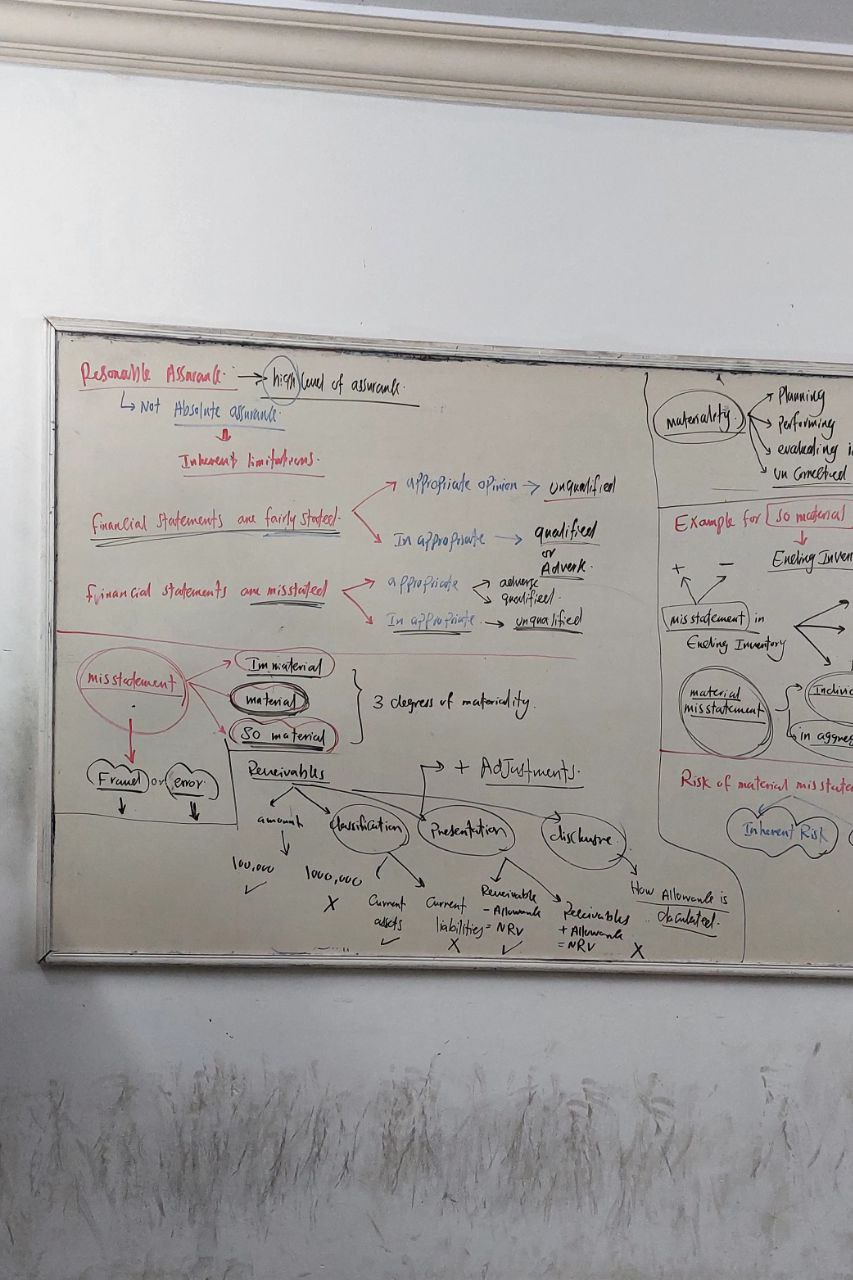 Resonable Assurance → high level of assurance.
↳ Not Absolute assurance
Inherent limitations.
financial statements are fairly stated.
appropriate opinion → unqualified
In appropriate → qualified
or
Adverse.
financial statements are misstated
appropriate
adverse
qualified.
In appropriate → unqualified
misstatement
Immaterial
material
SO material
3 degrees of materiality.
Fraud or error.
Receivables
+ Adjustments.
amount
classification
presentation
disclosure.
100,000 ✓
1000,000 X
Current
assets ✓
Current
liabilities X
Receivable
- Allowance
= NRV ✓
Receivables
+ Allowance
= NRV X
How Allowance is
calculated.
materiality
Planning
performing
evaluating
un corrected
Example for SO material
Ending Inven
+ -
misstatement in
Ending Inventory
material
misstatement
Individ
in aggre
Risk of material misstate
Inherent Risk